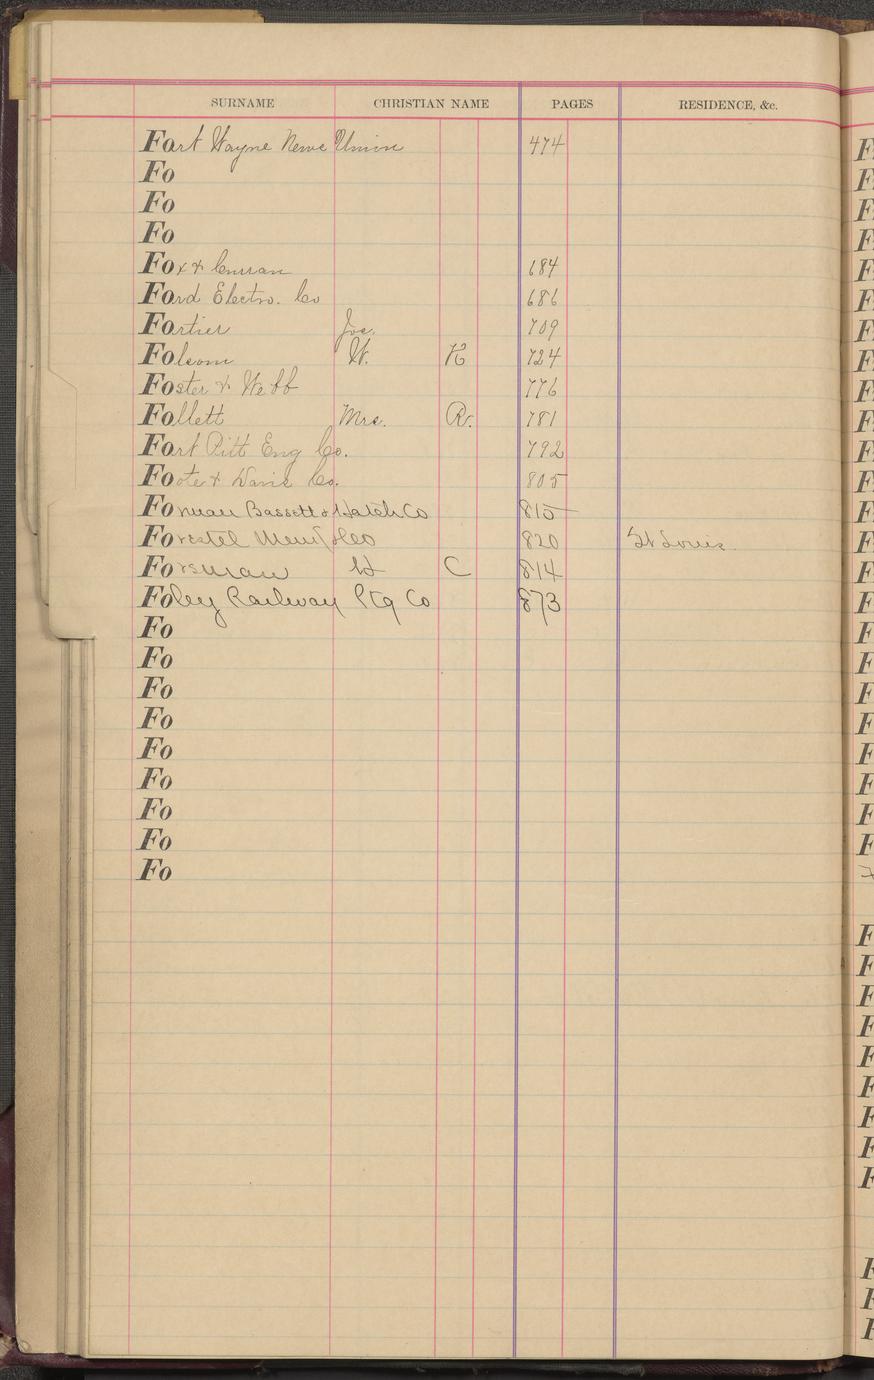 SURNAME CHRISTIAN NAME PAGES RESIDENCE, &c.
Fort Wayne News Union 474
Fo
Fo
Fo
Fox & Curran 684
Ford Electro. Co 686
Fortier Jos. 709
Folsom W. K 724
Foster & Webb 776
Follett Mrs. R. 781
Fort Pitt Eng Co. 792
Foote & Davis Co. 805
Forman Bassett & Hatch Co 815
Forestel Co 820 St Louis.
Forsman H C 814
Foley Railway Ptg Co 873
Fo
Fo
Fo
Fo
Fo
Fo
Fo
Fo
Fo